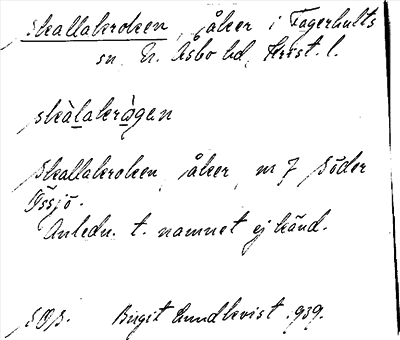 Skallakroken, åker i Fagerhults
sn N. Åsbo hd, Krist. l.
skàlakrògen
Skallakroken åker, m 7 Söder
Össjö.
Anledn. t. namnet ej känd.
Birgit Lundkvist 1939.